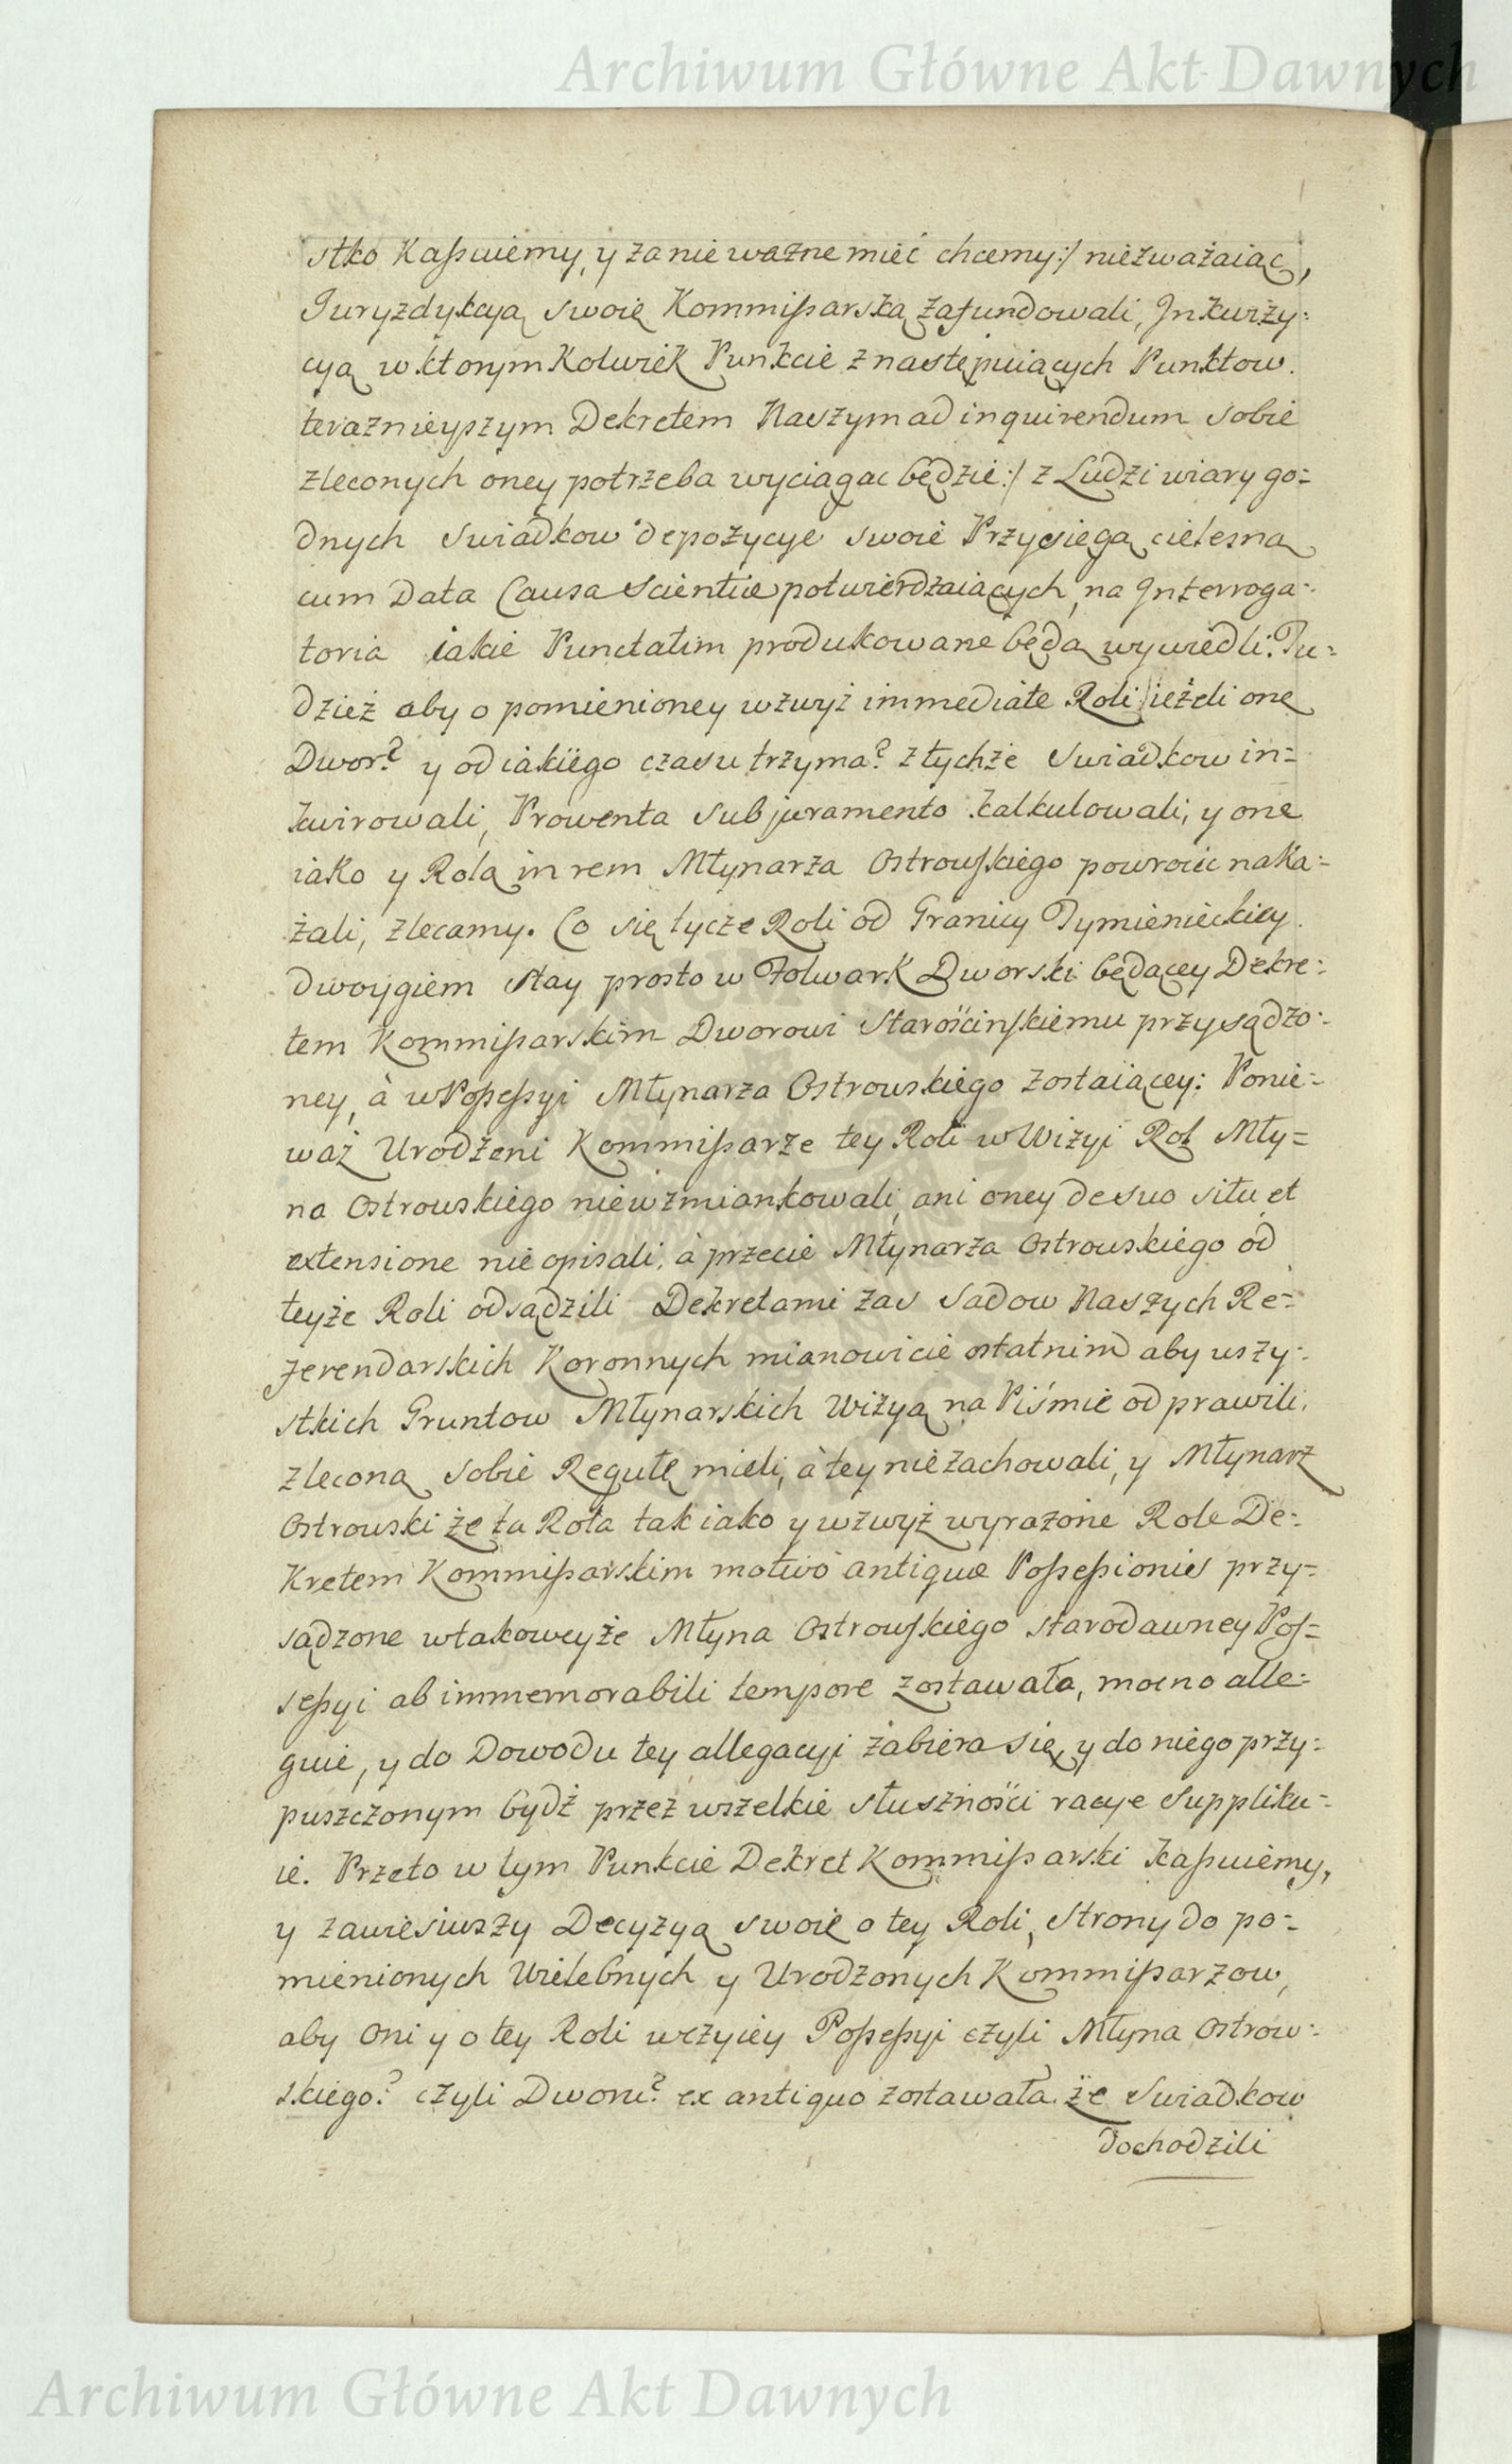 Archiwum Główne Akt Dawnych
stko Kaſsuiemy, y za nie wazne mieć chcemy:/ nieżważaiąc,
Juryzdykcyą swoię Kommiſsarską zafundowali, Jnkwizy:
cyą w ktorym Kolwiek Punkcie z następuiących Punktow.
teraznieyszym Dekretem Naszym ad inquirendum sobie
zleconych oney potrzeba wyciągac będzie:/ z Ludzi wiary go=
dnych Swiadkow depozycye swoie Przysięgą cielesną
cum Data Causa Scientiæ potwierdzaiących, na Jnterroga:
toria iakie Punctatim produkowane będą wywiedli: Tu=
dzież aby o pomienioney wzwyż immediate Roli jeżeli onę
Dwor? y od iakiego czasu trzyma? z tychże Swiadkow in=
kwirowali, Prowenta sub juramento kalkulowali, y one
iako y Rolą in rem Młynarza Ostrowskiego powrocic naka=
żali, zlecamy. Co się tycze Roli od Granicy Tymienieckiey.
dwoygiem stay prosto w Folwark Dworski będącey Dekre:
tem Kommiſsarskim Dworowi Starościnskiemu przysądzo:
ney, à w Poſseſsyi Młynarza Ostrowskiego zostaiącey: Ponie=
waż Urodzeni Kommiſsarze tey Roli w Wizyi Rol Mły=
na Ostrowskiego niewzmiankowali, ani oney de suo situ et
extensione nie opisali, à przecie Młynarza Ostrowskiego od
teyże Roli odsądzili Dekretami zas Sadow Naszych Re=
ferendarskich Koronnych mianowicie ostatnim aby wszy:
stkich Gruntow Młynarskich Wizyą na Piśmie odprawili,
zleconą sobie Regułę mieli, à tey nie zachowali, y Młynarz
Ostrowski że ta Rola tak iako y wzwyż wyrażone Role De:
Kretem Kommiſsarskim motivo antiquæ Poſseſsionis przy=
sądzone w takoweyże Młyna Ostrowskiego starodawney Poſ=
seſsyi ab immemorabili tempore zostawała, mocno alle=
guie, y do Dowodu tey allegacyi zabiera się, y do niego przy=
puszczonym bydź przez wszelkie słuszności racye suppliku=
ie. Przeto w tym Punkcie Dekret Kommiſsarski Kaſsuiemy,
y zawiesiwszy Decyzyą swoię o tey Roli, Strony do po=
mienionych Wielebnych y Urodzonych Kommiſsarzow,
aby oni y o tey Roli w czyiey Poſseſsyi czyli Młyna Ostrow:
skiego? czyli Dworu? ex antiquo zostawała. że Swiadkow
dochodzili
Archiwum Główne Akt Dawnych